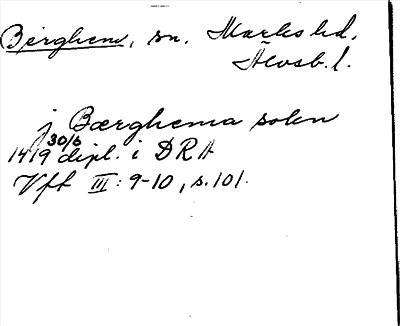 Berghem, sn. Marks hd.
Älvsb. l.
j Bærghema sokn
1419 30/6 dipl. i DRA
Vft III: 9-10, s. 101.